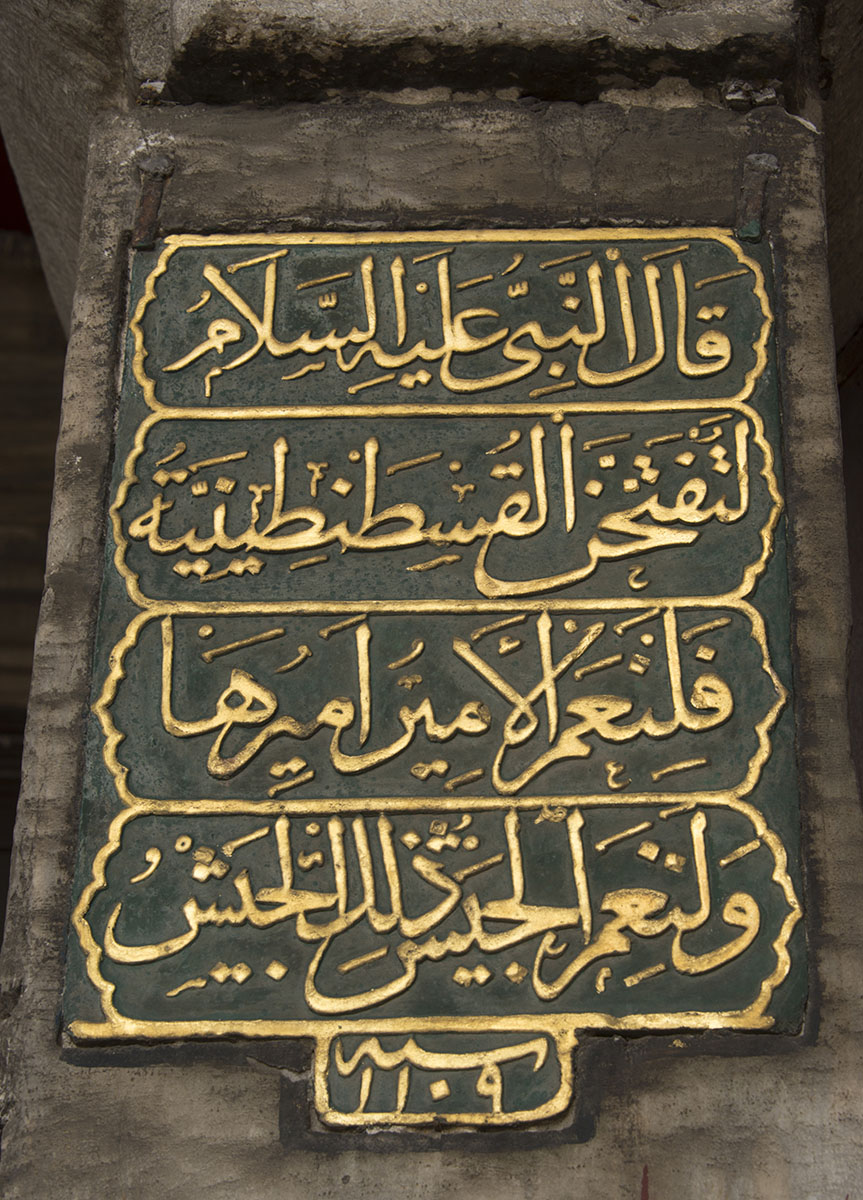 قَالَ النَّبِيُّ عَلَيْهِ السَّلَامُ
لَتُفْتَحَنَّ الْقُسْطَنْطِينِيَّةُ
فَلَنِعْمَ الْأَمِيرُ أَمِيرُهَا
وَلَنِعْمَ الْجَيْشُ ذٰلِكَ الْجَيْشُ
سنه ١١٠٩